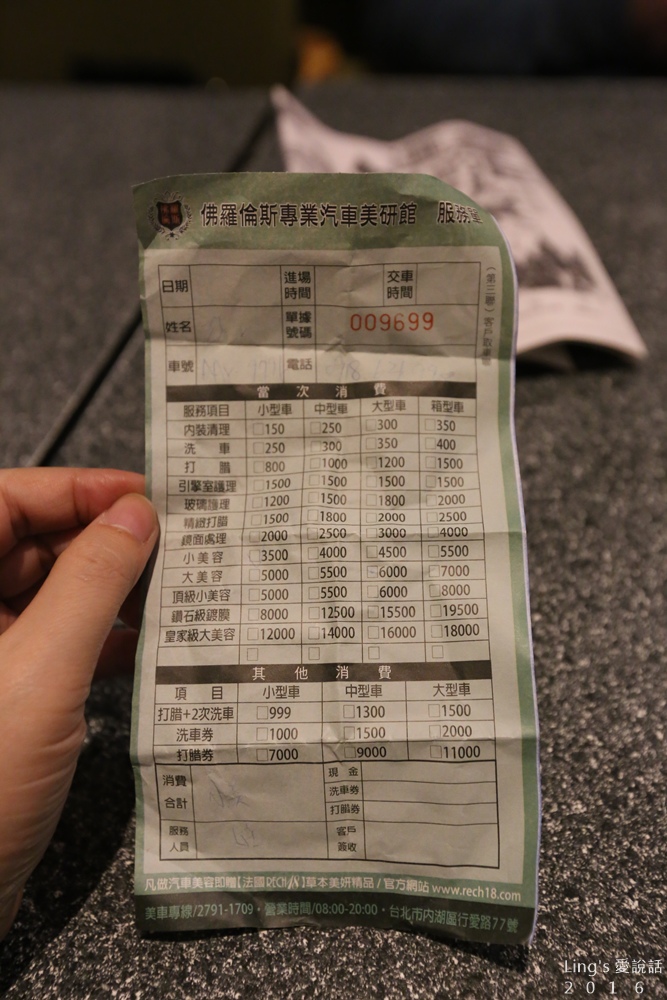 佛羅倫斯專業汽車美研館 服務
(第三聯)客戶取車聯
日期 進場時間 交車時間
姓名 單據號碼 009699
車號 電話
當次消費
服務項目 小型車 中型車 大型車 箱型車
內裝清理 □150 □250 □300 □350
洗車 □250 □300 □350 □400
打腊 □800 □1000 □1200 □1500
引擎室護理 □1500 □1500 □1500 □1500
玻璃護理 □1200 □1500 □1800 □2000
精緻打腊 □1500 □1800 □2000 □2500
鏡面處理 □2000 □2500 □3000 □4000
小美容 □3500 □4000 □4500 □5500
大美容 □5000 □5500 □6000 □7000
頂級小美容 □5000 □5500 □6000 □8000
鑽石級鍍膜 □8000 □12500 □15500 □19500
皇家級大美容 □12000 □14000 □16000 □18000
□ □ □ □
其他消費
項目 小型車 中型車 大型車
打腊+2次洗車 □999 □1300 □1500
洗車券 □1000 □1500 □2000
打腊券 □7000 □9000 □11000
消費合計 現金
洗車券
打腊券
服務人員 客戶簽收
凡做汽車美容即贈【法國RECH】草本美妍精品/官方網站 www.rech18.com
美車專線/2791-1709・營業時間/08:00-20:00・台北市內湖區行愛路77號
Ling's 愛說話
2016